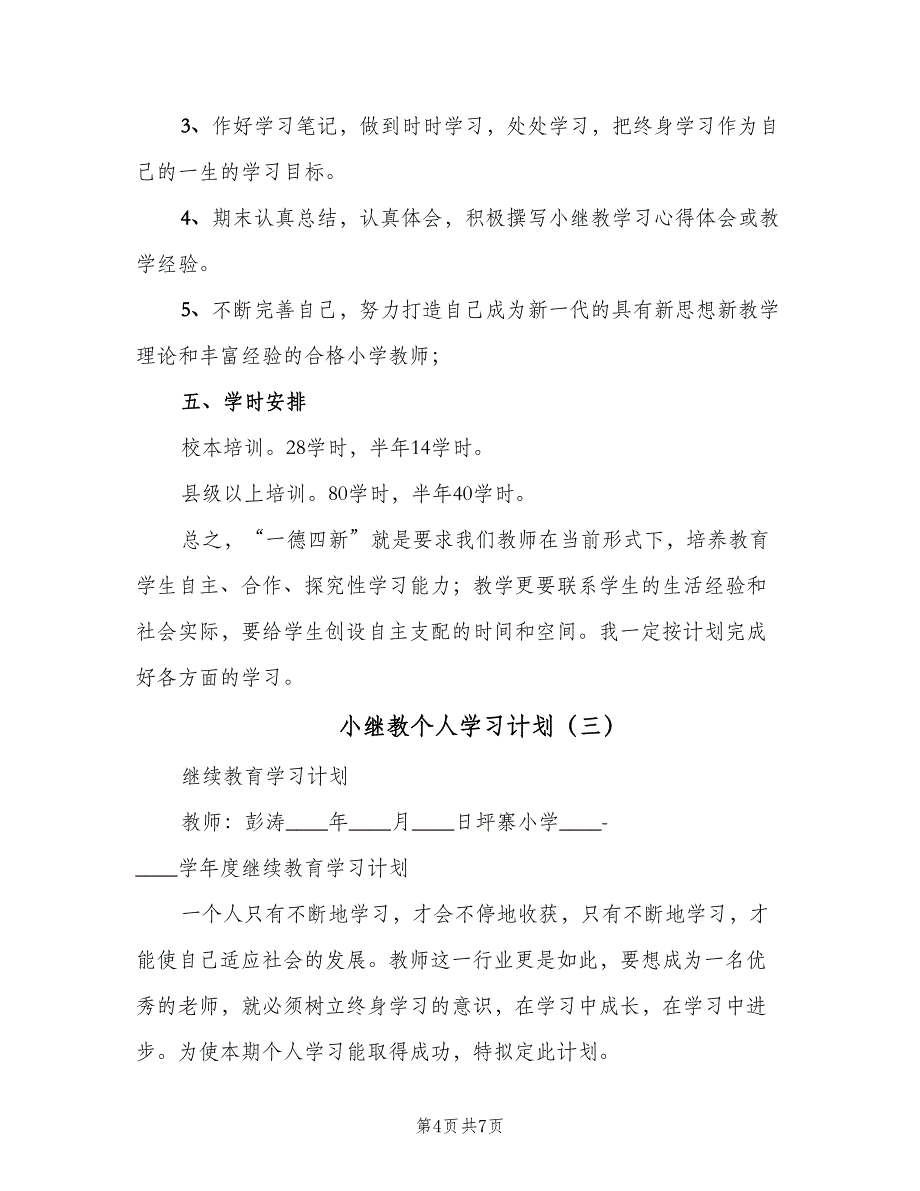 3、作好学习笔记，做到时时学习，处处学习，把终身学习作为自
己的一生的学习目标。
4、期末认真总结，认真体会，积极撰写小继教学习心得体会或教
学经验。
5、不断完善自己，努力打造自己成为新一代的具有新思想新教学
理论和丰富经验的合格小学教师；
五、学时安排
校本培训。28学时，半年14学时。
县级以上培训。80学时，半年40学时。
总之，“一德四新”就是要求我们教师在当前形式下，培养教育
学生自主、合作、探究性学习能力；教学更要联系学生的生活经验和
社会实际，要给学生创设自主支配的时间和空间。我一定按计划完成
好各方面的学习。
小继教个人学习计划（三）
继续教育学习计划
教师：彭涛____年____月____日坪寨小学____-
____学年度继续教育学习计划
一个人只有不断地学习，才会不停地收获，只有不断地学习，才
能使自己适应社会的发展。教师这一行业更是如此，要想成为一名优
秀的老师，就必须树立终身学习的意识，在学习中成长，在学习中进
步。为使本期个人学习能取得成功，特拟定此计划。
第4页共7页